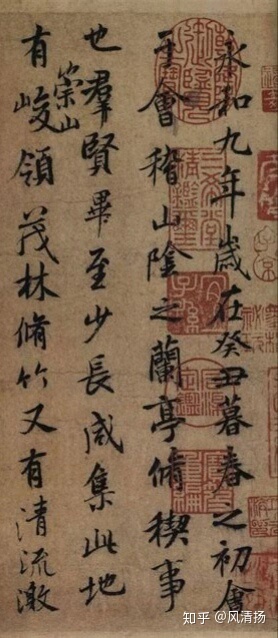 永和九年歲在癸丑暮春之初會
于會稽山陰之蘭亭脩稧事
也羣賢畢至少長咸集此地
有崇山峻領茂林脩竹又有清流激
知乎 @风清扬